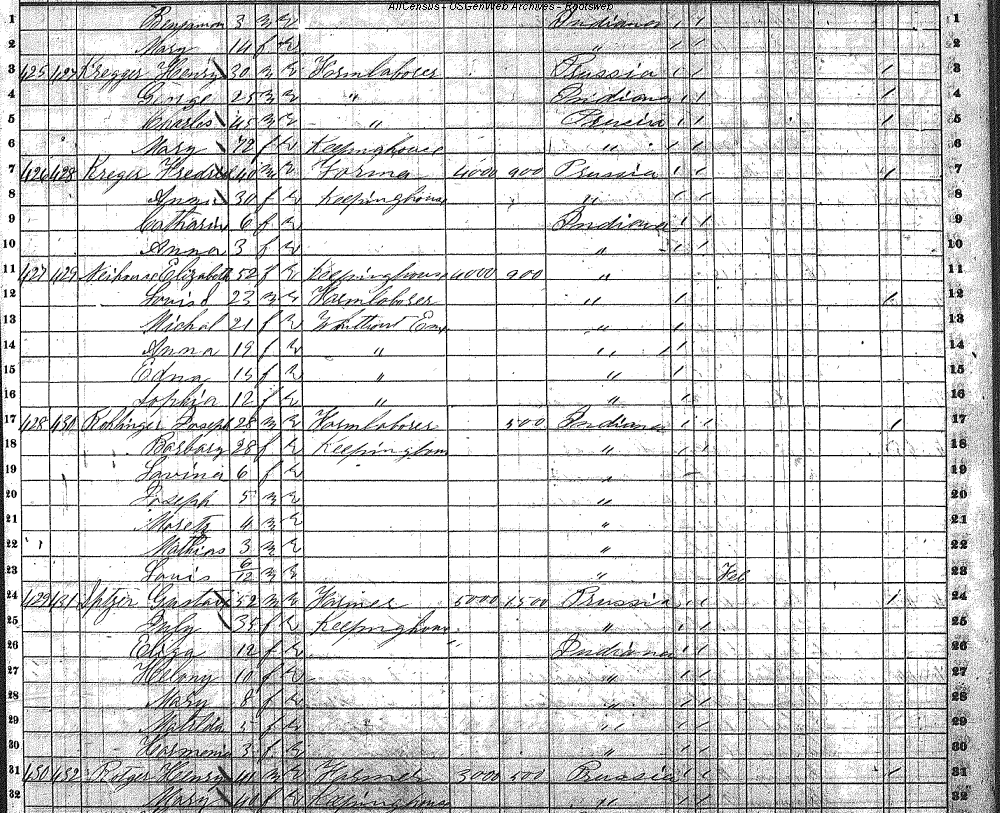 AllCensus - USGenWeb Archives - Rootsweb
1 Benjamon 3 m W Indiana / / 1
2 Mary 14 f W " / / 2
3 425 427 Kregger Henry 30 m W Farmlaborer Prussia / / / 3
4 George 25 m W " Indiana / / / 4
5 Charles 45 m W " Prussia / / / 5
6 Mary 72 f W Keepinghouse " / / 6
7 426 428 Kreger Fredric 40 m W Farmer 4000 900 Prussia / / / 7
8 Anna 30 f W Keepinghouse " / / 8
9 Catharin 6 f W Indiana / / 9
10 Anna 3 f W " / / 10
11 427 429 Elizabeth 52 f W Keepinghouse 4000 900 " 11
12 Louis 23 m W Farmlaborer " / / 12
13 Michal 21 f W Whithout Em " / 13
14 Anna 19 f W " " / / 14
15 Edna 15 f W " " / 15
16 Sophia 12 f W " " / 16
17 428 430 Rohlinger Joseph 28 m W Farmlaborer 500 Indiana / / / 17
18 Barbary 28 f W Keepinghous " / / 18
19 Lavina 6 f W " 19
20 Joseph 5 m W " 20
21 4 m W " 21
22 Mathias 3 m W " 22
23 Louis 6/12 m W " Feb 23
24 429 431 Gustave 52 m W Farmer 5000 1500 Prussia / / / 24
25 July 35 f W Keepinghous " / / 25
26 Eliza 12 f W " Indiana / / 26
27 Helony 10 f W " / / 27
28 Mary 8 f W " / / 28
29 Matilda 5 f W " / / 29
30 Harmonia 3 f W " / / 30
31 430 432 Rotger Henry m W Farmer 3000 500 Prussia / / / 31
32 Mary 40 f W Keepinghouse " / / 32